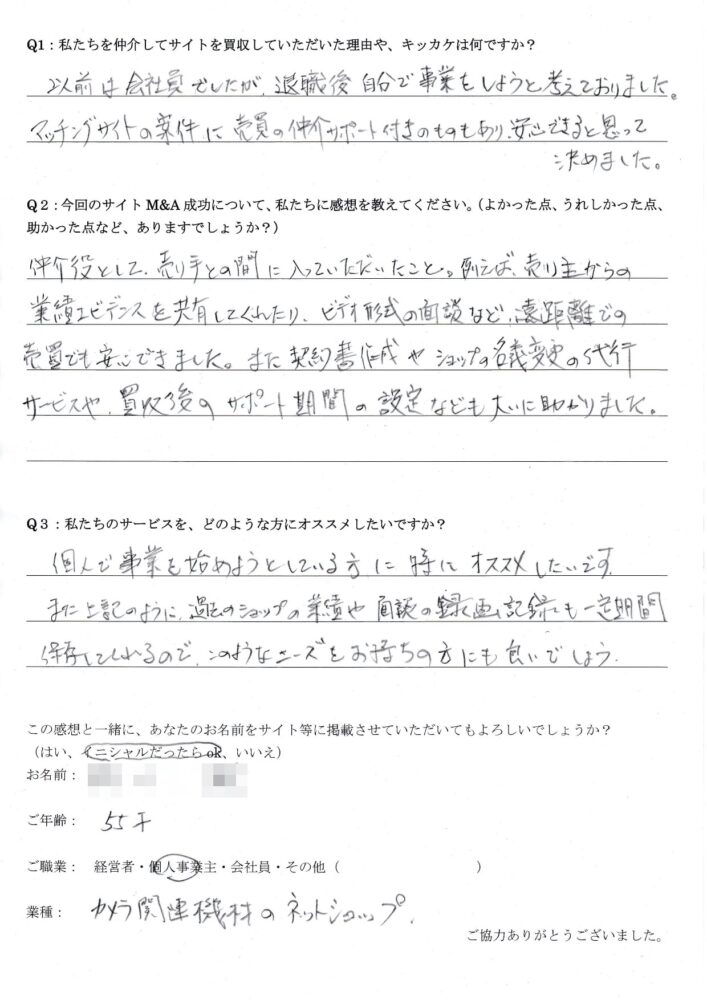 Q1:私たちを仲介してサイトを買収していただいた理由や、キッカケは何ですか?
以前は会社員でしたが、退職後自分で事業をしようと考えておりました。
マッチングサイトの案件に売買の仲介サポート付きのものもあり、安心できると思って
決めました。
Q2:今回のサイトM&A成功について、私たちに感想を教えてください。(よかった点、うれしかった点、
助かった点など、ありますでしょうか?)
仲介役として、売り手との間に入っていただいたこと。例えば、売り主からの
業績エビデンスを共有してくれたり、ビデオ形式の面談など、遠距離での
売買でも安心できました。また契約書作成やショップの名義変更の代行
サービスや、買収後のサポート期間の設定なども大いに助かりました。
Q3:私たちのサービスを、どのような方にオススメしたいですか?
個人で事業を始めようとしている方に特にオススメしたいです。
また上記のように、過去のショップの業績や面談の録画記録も一定期間
保存してくれるので、このようなニーズをお持ちの方にも良いでしょう。
この感想と一緒に、あなたのお名前をサイト等に掲載させていただいてもよろしいでしょうか?
(はい、イニシャルだったらok、いいえ)
お名前:
ご年齢: 55才
ご職業: 経営者・個人事業主・会社員・その他( )
業種: カメラ関連機材のネットショップ.
ご協力ありがとうございました。